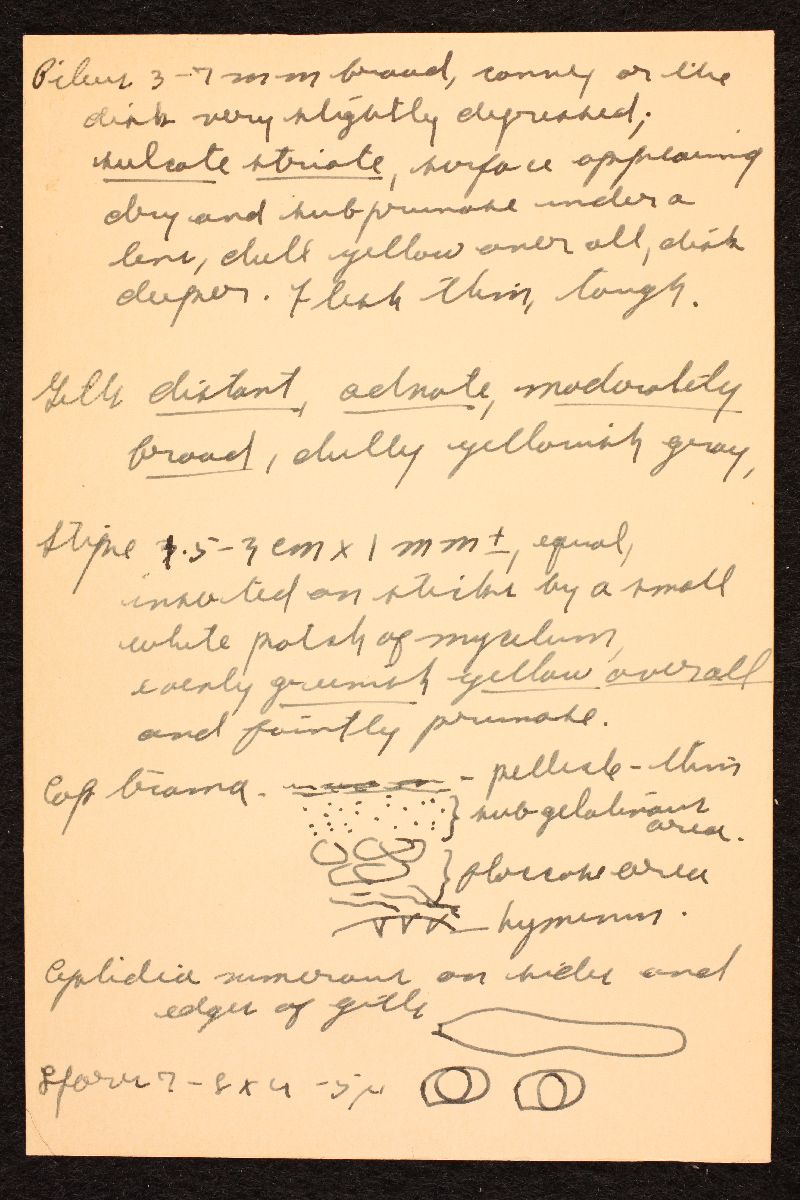 Pileus 3-7 mm broad, convex or the
disk very slightly depressed;
sulcate striate, surface appearing
dry and subpruinose under a
lens, dull yellow over all, disk
deeper. Flesh thin, tough.
Gills distant, adnate, moderately
broad, dully yellowish gray,
Stipe 1.5-3 cm x 1 mm ±, equal,
inserted on sticks by a small
white patch of mycelium,
evenly greenish yellow overall
and faintly pruinose.
Cap trama. - pellicle - thin
subgelatinous
area.
floccose area
hymenium.
Cystidia numerous on sides and
edges of gills
Spores 7-8 x 4-5 µ